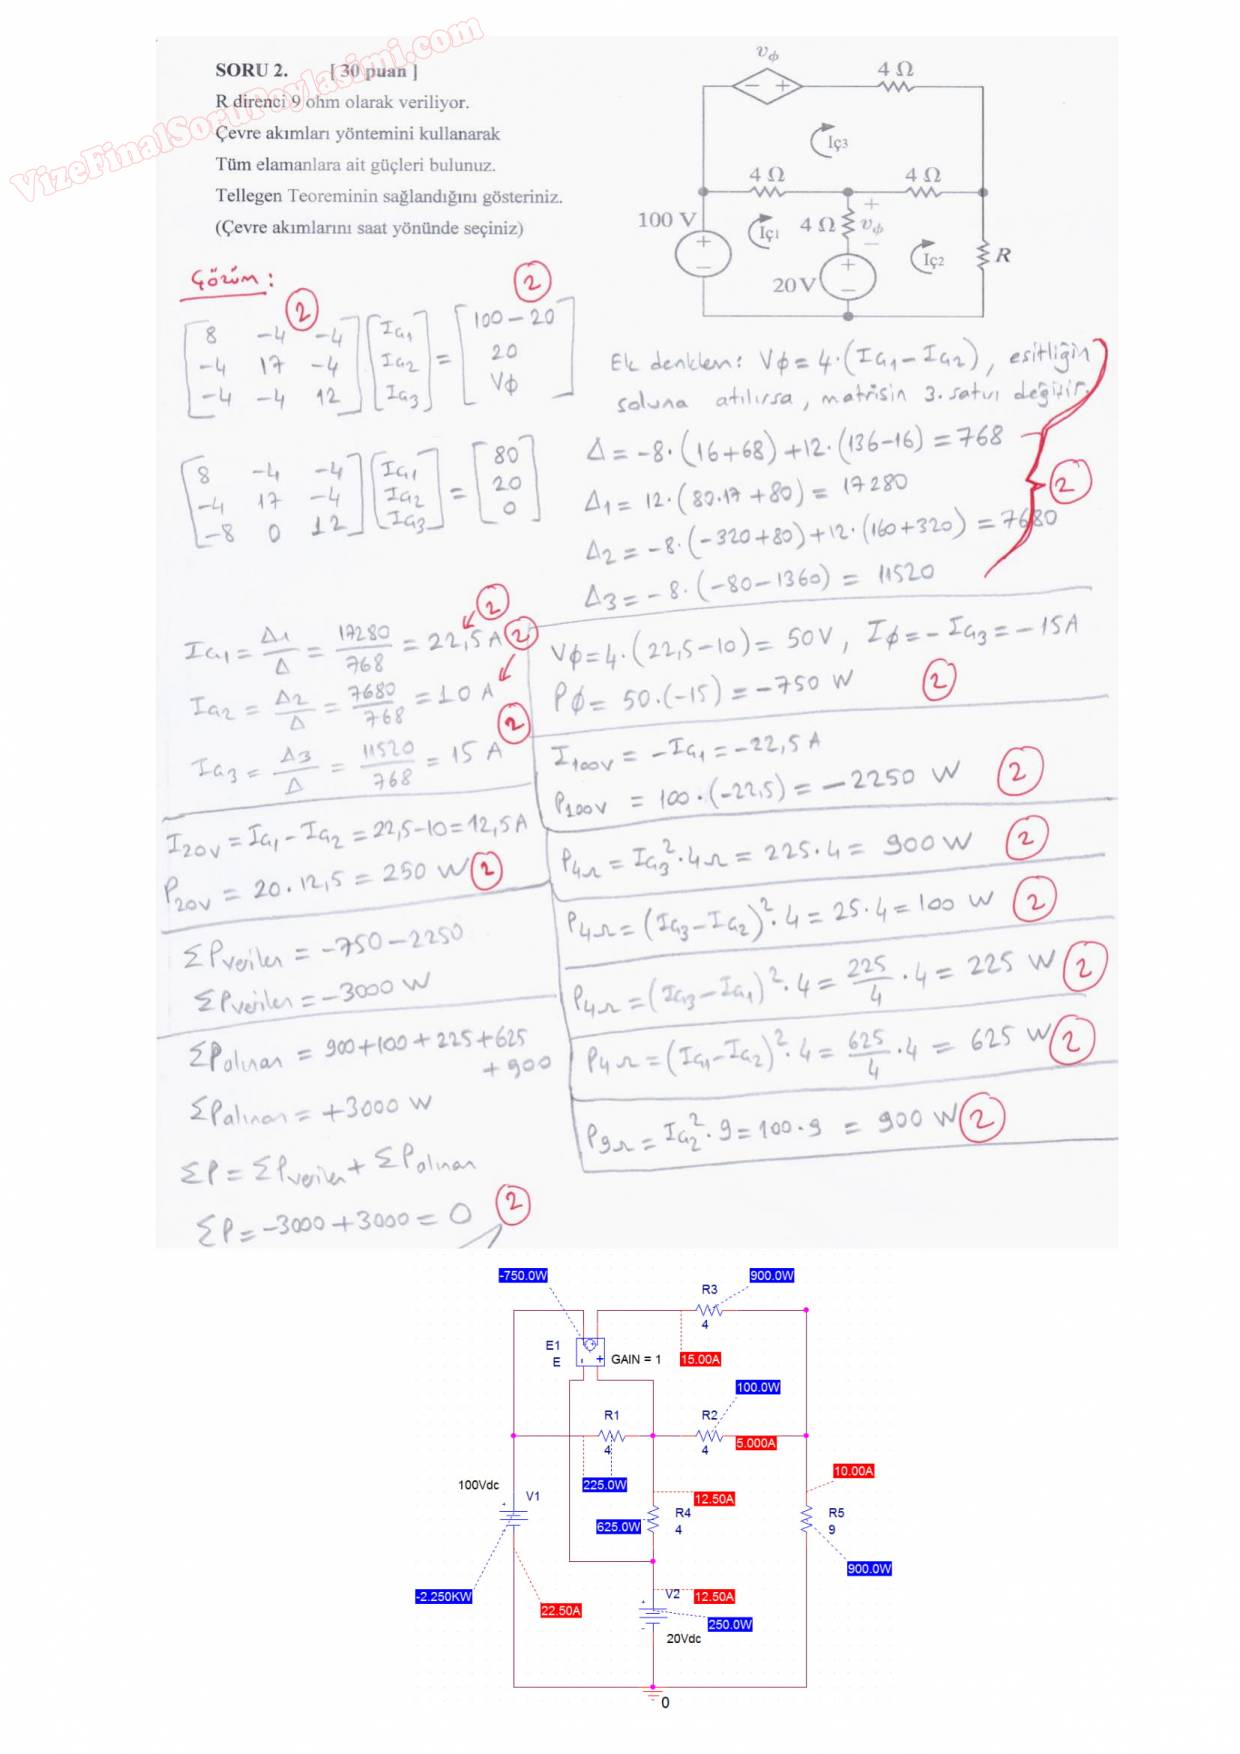 VizeFinalSoruPaylasimi.com
SORU 2. [ 30 puan ]
R direnci 9 ohm olarak veriliyor.
Çevre akımları yöntemini kullanarak
Tüm elamanlara ait güçleri bulunuz.
Tellegen Teoreminin sağlandığını gösteriniz.
(Çevre akımlarını saat yönünde seçiniz)
vϕ
− +
4 Ω
Iç3
4 Ω
4 Ω
100 V
+
−
Iç1
4 Ω
+
vϕ
−
Iç2
R
20 V
+
−
Çözüm:
2
2
8 -4 -4
-4 17 -4
-4 -4 12
Iç1
Iç2
Iç3
=
100-20
20
Vϕ
Ek denklem: Vϕ=4·(Iç1-Iç2), eşitliğin
soluna atılırsa, matrisin 3. satırı değişir.
8 -4 -4
-4 17 -4
-8 0 12
Iç1
Iç2
Iç3
=
80
20
0
Δ=-8·(16+68)+12·(136-16)=768
Δ1=12·(80·17+80)=17280
2
Δ2=-8·(-320+80)+12·(160+320)=7680
Δ3=-8·(-80-1360)=11520
Iç1=Δ1/Δ=17280/768=22,5A 2
Iç2=Δ2/Δ=7680/768=10 A 2
Iç3=Δ3/Δ=11520/768=15 A 2
Vϕ=4·(22,5-10)=50V, Iϕ=-Iç3=-15A
Pϕ=50·(-15)=-750 W 2
I100V=-Iç1=-22,5A
P100V=100·(-22,5)=-2250 W 2
I20V=Iç1-Iç2=22,5-10=12,5A
P20V=20·12,5=250 W 2
P4Ω=Iç3²·4Ω=225·4=900W 2
P4Ω=(Iç3-Iç2)²·4=25·4=100 W 2
P4Ω=(Iç3-Iç1)²·4=225/4·4=225 W 2
P4Ω=(Iç1-Iç2)²·4=625/4·4=625 W 2
P9Ω=Iç2²·9=100·9=900 W 2
ΣPverilen=-750-2250
ΣPverilen=-3000W
ΣPalınan=900+100+225+625
+900
ΣPalınan=+3000 W
ΣP=ΣPverilen+ΣPalınan
ΣP=-3000+3000=0 2
-750.0W
R3
900.0W
4
E1
E
- +
GAIN = 1
15.00A
100.0W
R1
R2
4
4
5.000A
225.0W
10.00A
100Vdc
V1
+
12.50A
R4
4
625.0W
R5
9
900.0W
-2.250KW
22.50A
V2
12.50A
+
250.0W
-
20Vdc
0